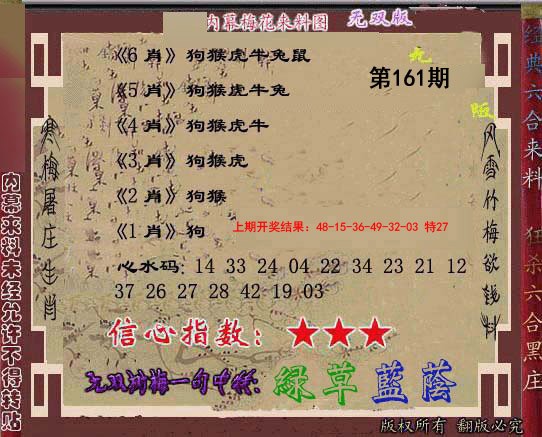 内幕梅花来料图 无双版
《6 肖》狗猴虎牛兔鼠
第161期
《5 肖》狗猴虎牛兔
《4 肖》狗猴虎牛
《3 肖》狗猴虎
《2 肖》狗猴
《1 肖》狗
上期开奖结果：48-15-36-49-32-03 特27
心水码：14 33 24 04 22 34 23 21 12
37 26 27 28 42 19 03
信心指数：★★★
无双树梅一句中特：綠草藍蔭
版权所有 翻版必究
寒梅屠庄生肖
风雪竹梅欲钱料
内幕来料未经允许不得转贴
经典六合来料
狂杀六合黑庄